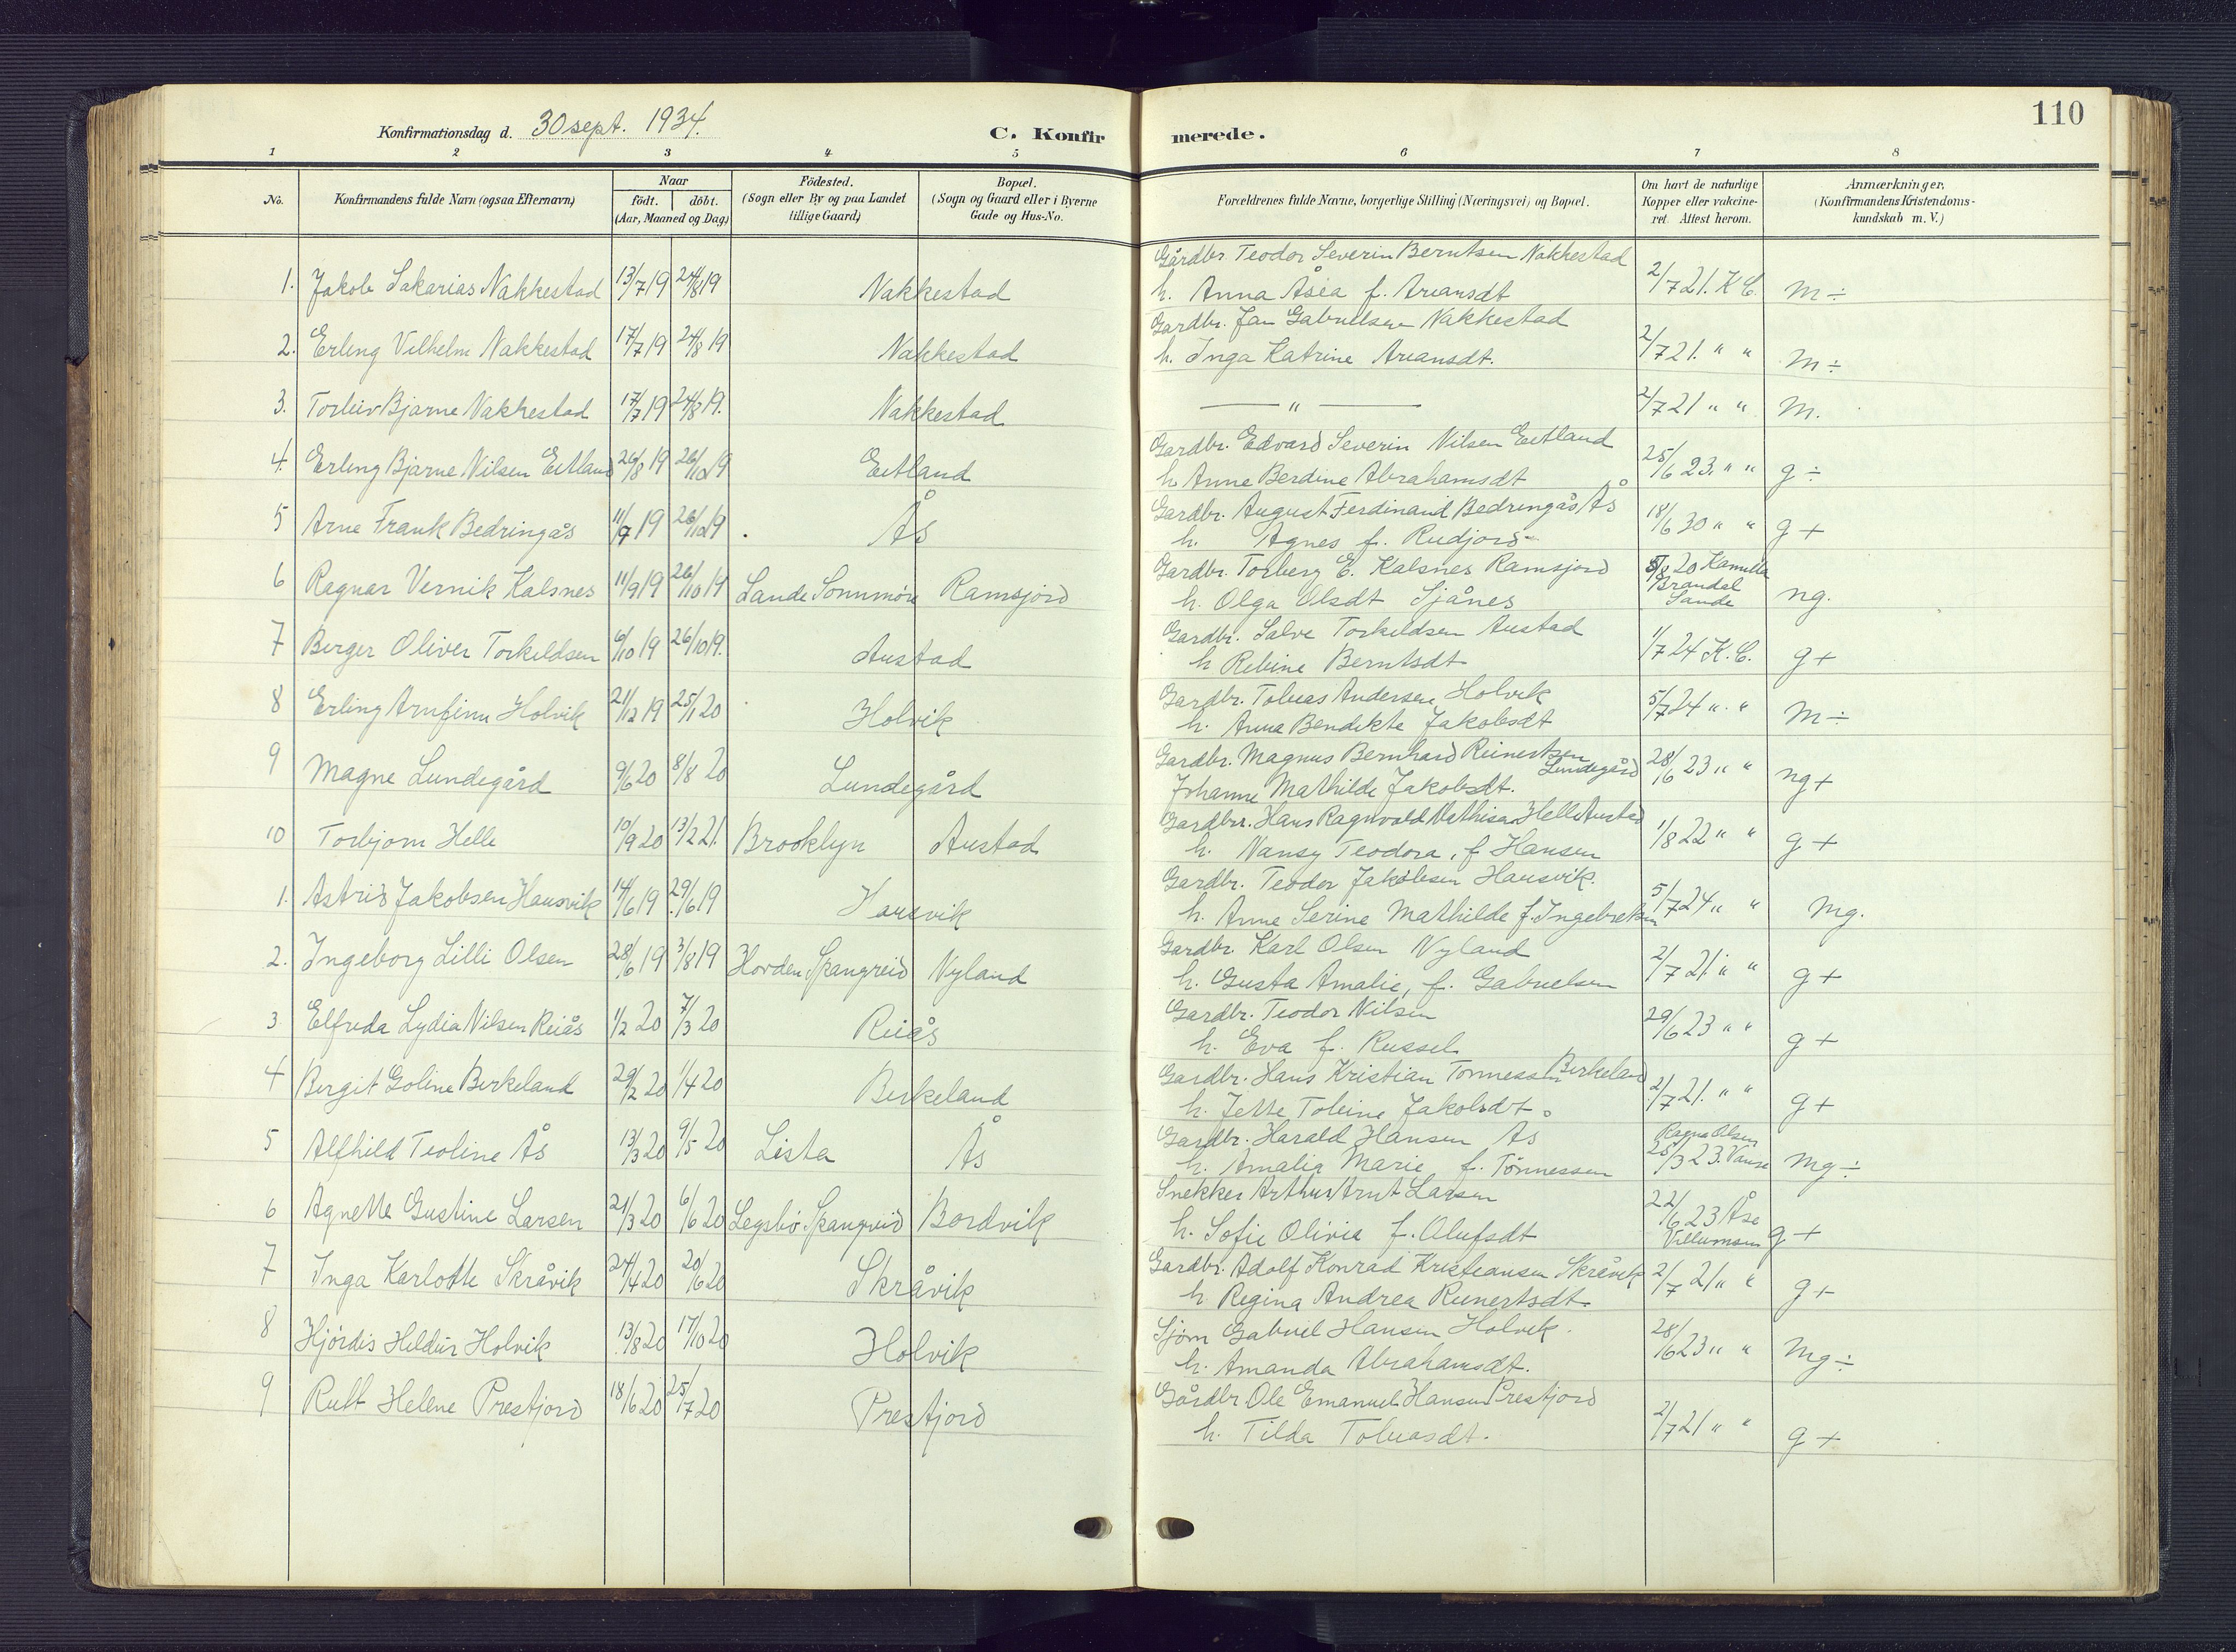 110
Konfirmationsdag d. 30 sept. 1934.
C. Konfirmerede.
1 2 3 4 5 6 7 8
No.
Konfirmandens fulde Navn (ogsaa Efternavn)
Naar
födt. döbt.
(Aar, Maaned og Dag)
Födested.
(Sogn eller By og paa Landet
tillige Gaard)
Bopæl.
(Sogn og Gaard eller i Byerne
Gade og Hus-No.
Forældrenes fulde Navne, borgerlige Stilling (Næringsvei) og Bopæl.
Om havt de naturlige
Kopper eller vakcine-
ret. Attest herom.
Anmærkninger,
(Konfirmandens Kristendoms-
kundskab m. V.)
Gårdbr. Teodor Severin Berntsen Nakkestad
1. Jakob Sakarias Nakkestad 13/7 19 24/8 19 Nakkestad h. Anna Åsea f. Ariansdt 2/7 21. K C. M ÷
Gardbr. Jan Gabrielsen Nakkestad
2. Erling Vilhelm Nakkestad 17/7 19 24/8 19 Nakkestad h. Inga Katrine Ariansdt. 2/7 21. " " M ÷
3. Torleiv Bjarne Nakkestad 17/7 19 24/8 19. Nakkestad — " — 2/7 21 " " M.
Gardbr. Edvard Severin Nilsen Eitland
4. Erling Bjarne Nilsen Eitland 26/8 19 26/10 19 Eitland h Anne Berdine Abrahamsdt 25/6 23. " " g ÷
Gardbr. August Ferdinand Bedringås Ås
5 Arne Frank Bedringås 11/9 19 26/10 19 Ås h. Agnes f. Rudjord 18/6 30 " " g +
Gardbr. Torberg E. Kalsnes Ramsjord
6 Ragnar Vernik Kalsnes 11/9 19 26/10 19 Sande Sonnmöre Ramsjord h. Olga Olsdt Sjånes 5/8 20 Kamilla Brandal Sande ng.
Gardbr. Salve Torkildsen Austad
7 Berger Oliver Torkildsen 6/10 19 26/10 19. Austad h Rebine Berntsdt 1/7 24 K. C. g +
Gardbr. Tobias Andersen Holvik
8 Erling Arnfinn Holvik 21/12 19 25/1 20 Holvik h. Anna Bendikte Jakobsdt 5/7 24 " " M ÷
Gardbr. Magnus Bernhard Reinertsen Lundegård
9 Magne Lundegård 9/6 20 8/8 20 Lundegård Johanne Mathilde Jakobsdt. 28/6 23 " " ng +
Gardbr. Hans Ragnvald Mathisen Helle Austad
10 Torbjorn Helle 10/9 20 13/2 21. Brooklyn Austad h. Nansy Teodora, f Hansen 1/8 22 " " g +
Gardbr. Teodor Jakobsen Hausvik.
1. Astrid Jakobsen Hausvik 14/6 19 29/6 19 Hausvik h. Anne Serine Mathilde f. Ingebretsen 5/7 24 " " Mg.
Gardbr. Karl Olsen Nyland
2. Ingeborg Lilli Olsen 28/6 19 3/8 19 Hovden Spangreid Nyland h. Gusta Amalie, f. Gabrielsen 2/7 21. " " g +
Gardbr. Teodor Nilsen
3 Elfreda Lydia Nilsen Reiås 1/2 20 7/3 20 Reiås h. Eva f. Russel 29/6 23 " " g +
Gardbr. Hans Kristian Tonnessen Birkeland
4 Bergit Goline Birkeland 29/2 20 1/4 20 Birkeland h. Jette Toline Jakobsdt. 2/7 21. " " g +
Gardbr. Harald Hansen Ås
5 Alfhild Teoline Ås 13/3 20 9/5 20 Lista Ås h. Amalia Marie f. Tönnessen Ragna Olsen 28/3 23. Vanse Mg ÷
Snekker Arthur Arnt Larsen
6 Agnette Gustine Larsen 21/3 20 6/6 20 Legsbö Spangreid Bordvik h. Sofie Olivia f. Olufsdt 22/6 23 Åse Villumsen g +
Gardbr. Adolf Konrad Kristiansen Skråvik
7 Inga Karlotte Skråvik 24/4 20 20/6 20 Skråvik h. Regina Andrea Reinertsdt. 2/7 21 " " g +
Sjöm Gabriel Hansen Holvik.
8 Hjördis Heldur Holvik 13/8 20 17/10 20 Holvik h. Amanda Abrahamsdt. 28/6 23 " " Mg ÷
Gårdbr Ole Emanuel Hansen Prestjord
9 Rutt Helene Prestjord 18/6 20 25/7 20 Prestjord h. Tilda Tobiasdt. 2/7 21 " " g +